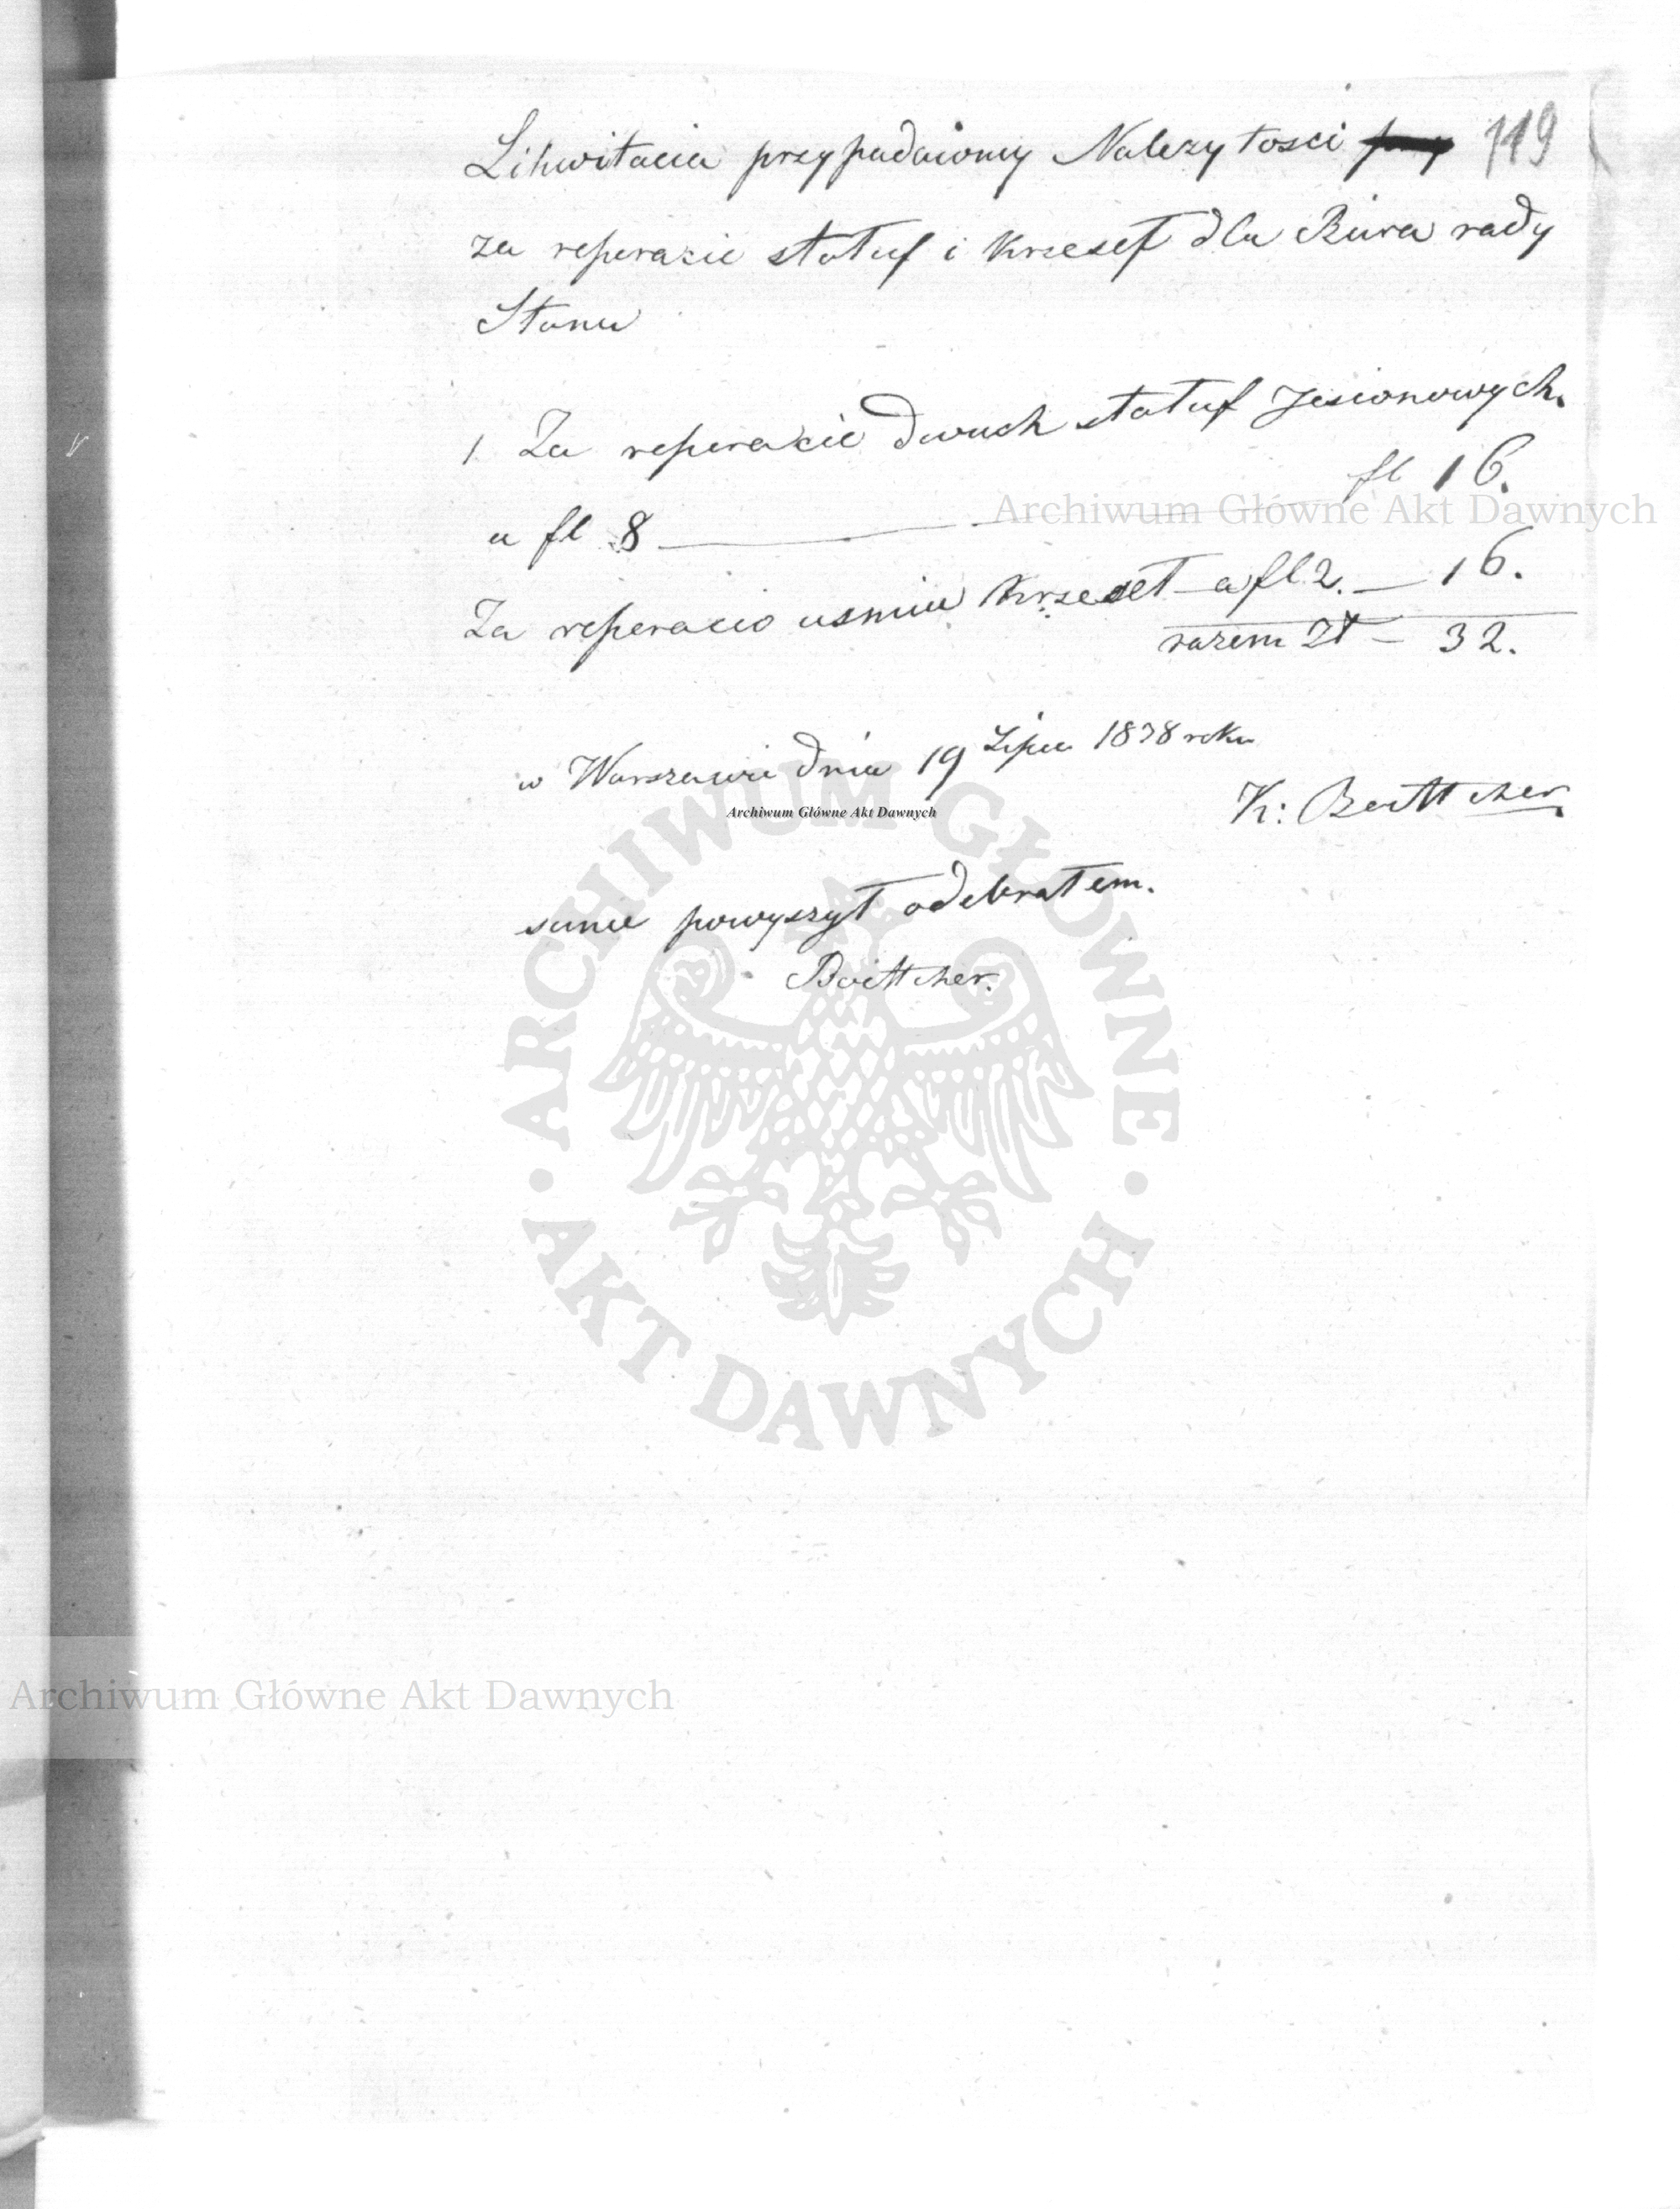 Likwitacia przypadaiony Nalezytosci 119
za reperacie stołuf i Krzeseł dla Biura rady
Stanu
1 Za reperacie dwuch stołuf Jesionowych.
a fl 8 — fl 16.
Archiwum Główne Akt Dawnych
Za reperacio usmiu Krzeseł a fl 2. — 16.
razem Zł — 32.
w Warszawie dnia 19 Lipca 1838 roku
K: Boettcher
Archiwum Główne Akt Dawnych
sume powyszył odebrałem.
Boettcher.
ARCHIWUM GŁÓWNE
AKT DAWNYCH
Archiwum Główne Akt Dawnych